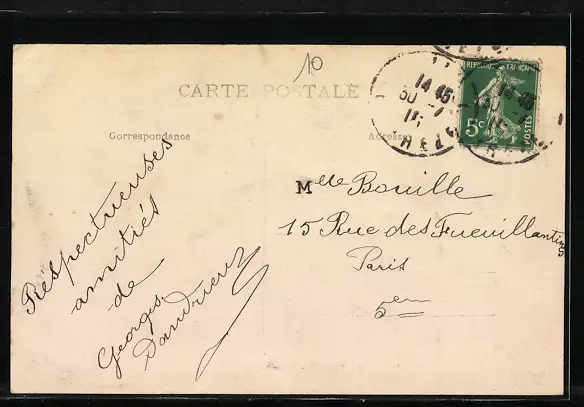 10
CARTE POSTALE
RÉPUBLIQUE FRANÇAISE
5c
POSTES
14 45
30 -7
15
Correspondance
Adresse
Respectueuses
amitiés
de
Georges
Dandrieux
Mlle Bouille
15 Rue des Feuillantines
Paris
5em